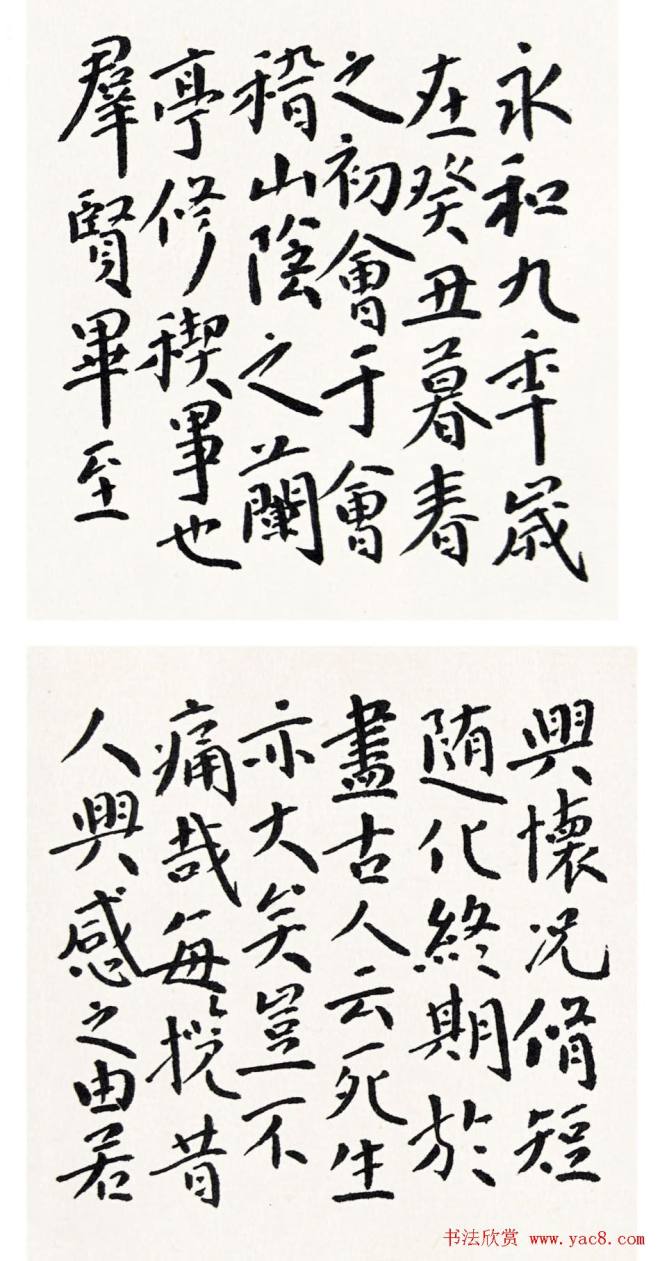 永和九年歲
在癸丑暮春
之初會于會
稽山陰之蘭
亭修禊事也
羣賢畢至
興懷況脩短
随化終期於
盡古人云死生
亦大矣豈不
痛哉每攬昔
人興感之由若
书法欣赏 www.yac8.com